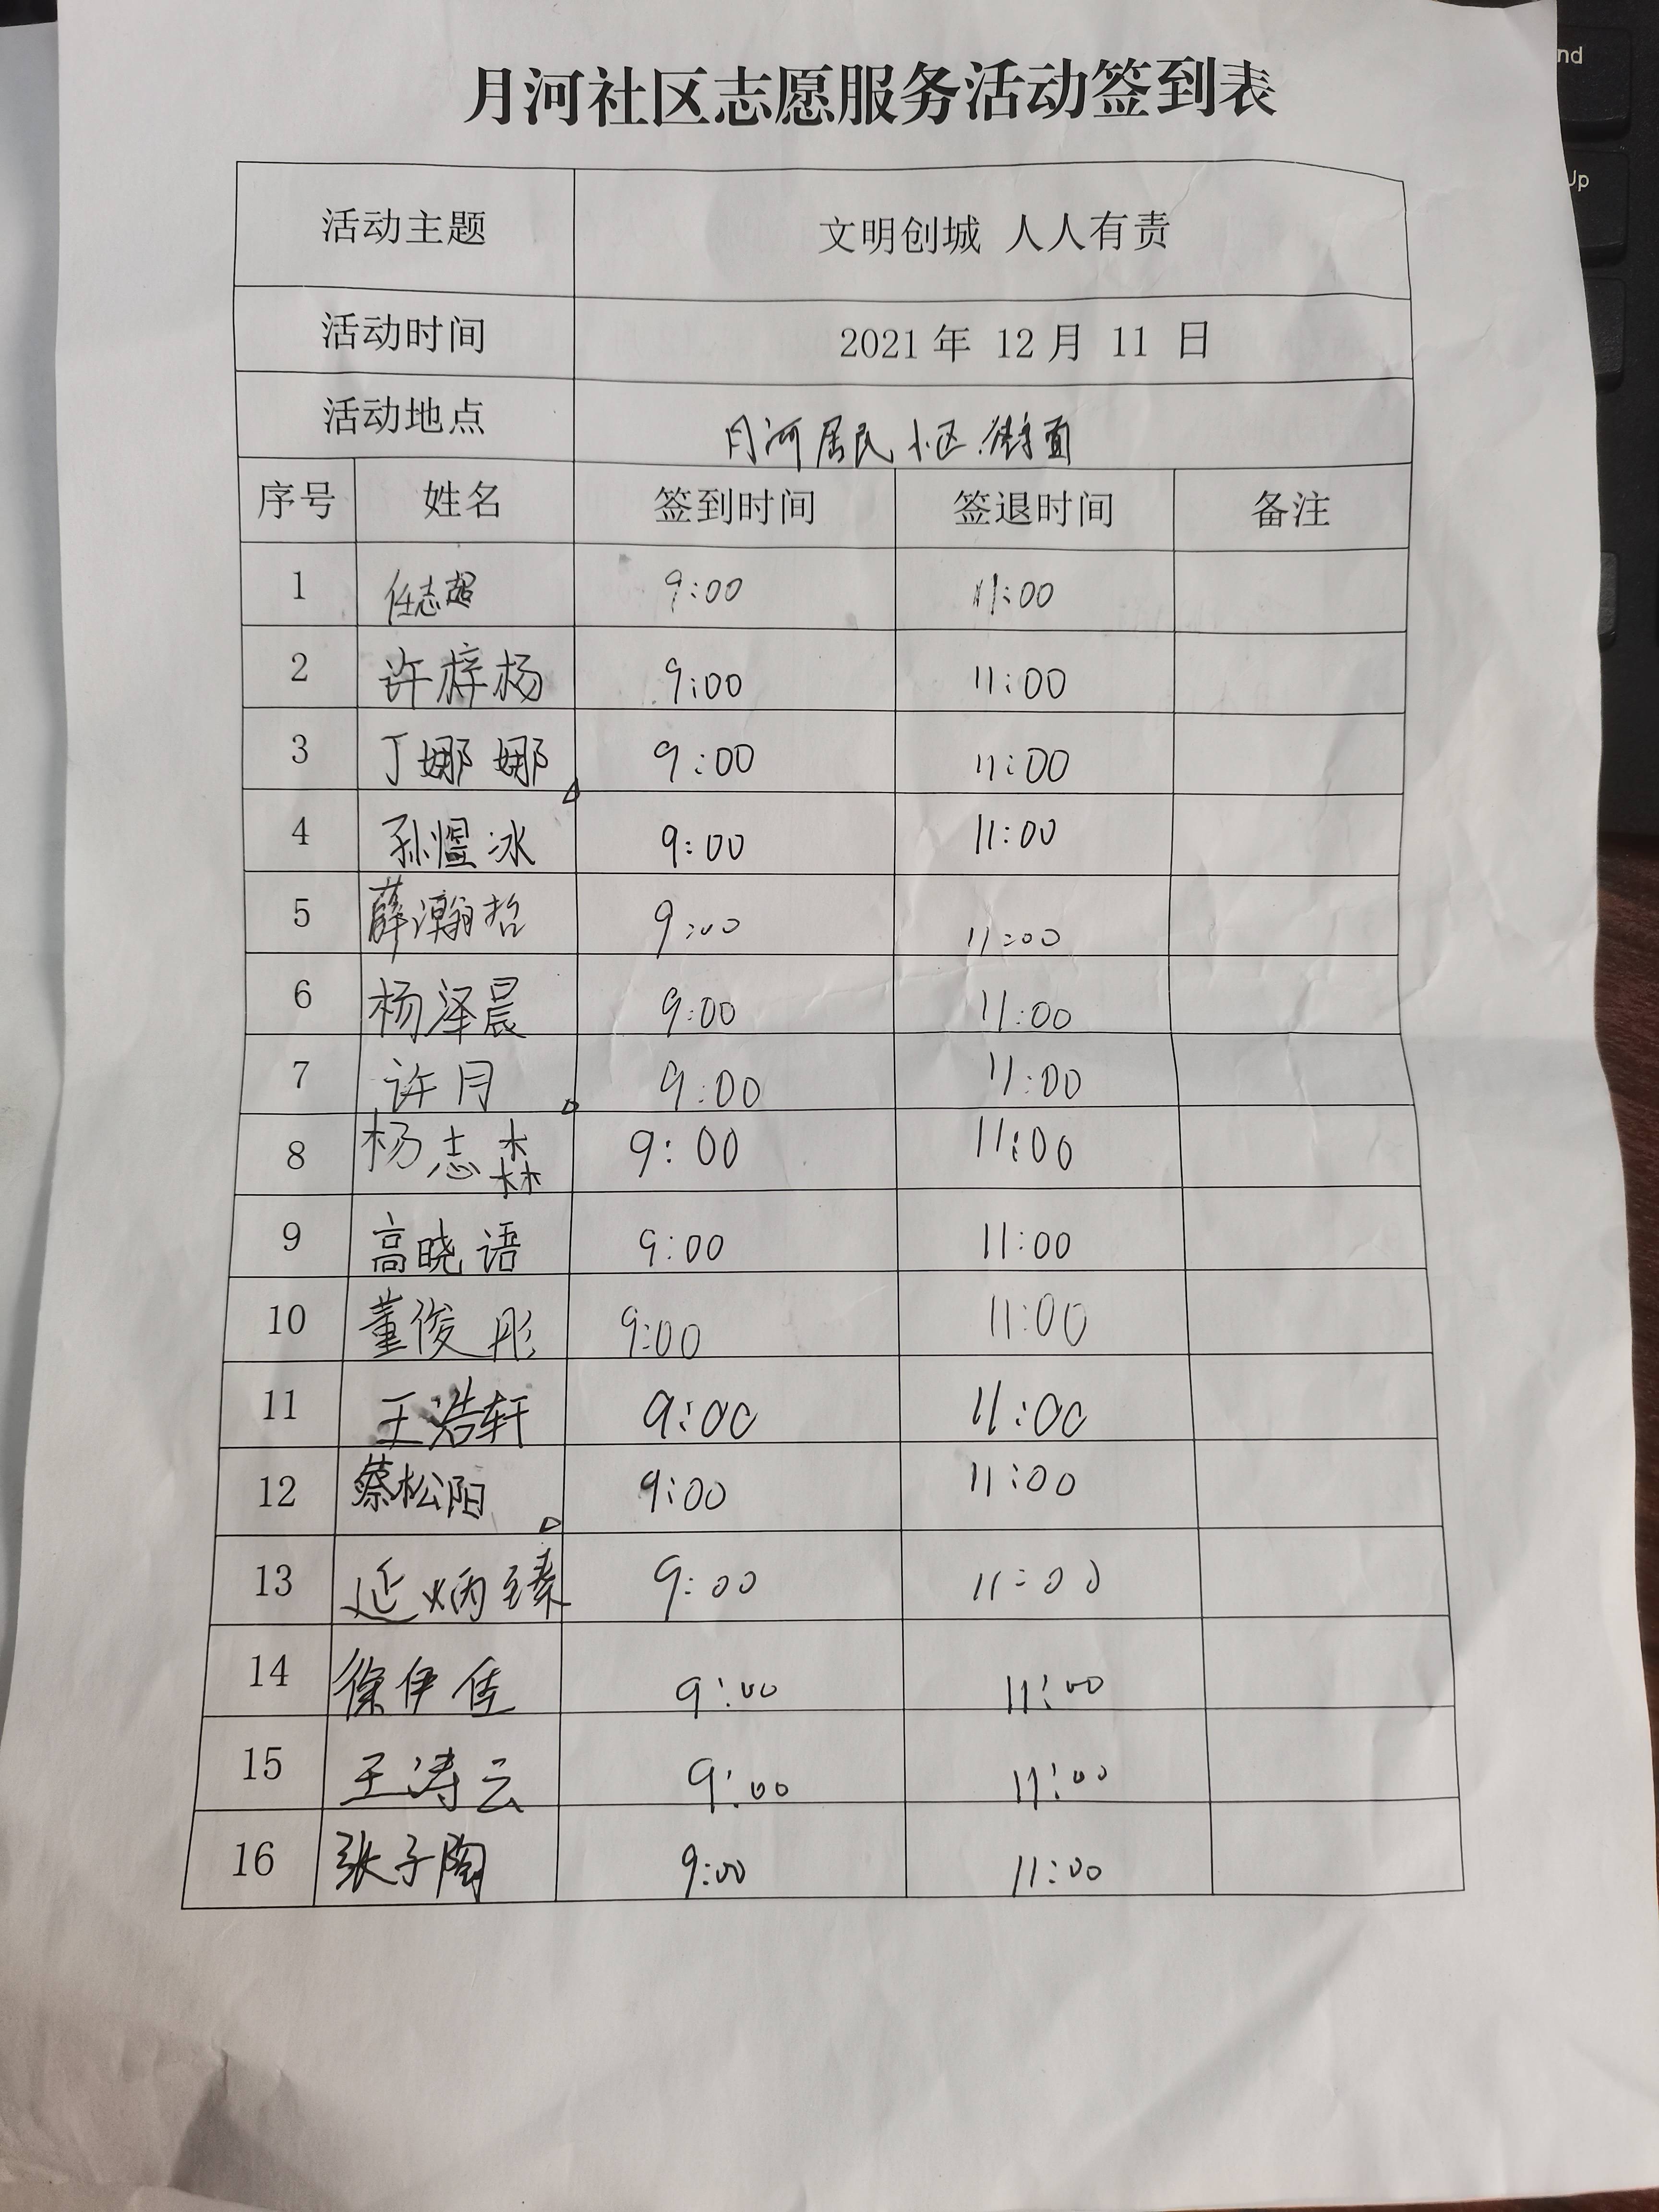 月河社区志愿服务活动签到表
活动主题 文明创城 人人有责
活动时间 2021年 12月 11 日
活动地点 月河居民小区.街面
序号 姓名 签到时间 签退时间 备注
1 任志超 9:00 11:00
2 许梓杨 9:00 11:00
3 丁娜娜 9:00 11:00
4 孙煜冰 9:00 11:00
5 薛瀚哲 9:00 11:00
6 杨泽晨 9:00 11:00
7 许月 9:00 11:00
8 杨志森 9:00 11:00
9 高晓语 9:00 11:00
10 董俊彤 9:00 11:00
11 王浩轩 9:00 11:00
12 蔡松阳 9:00 11:00
13 延炳臻 9:00 11:00
14 徐伊佳 9:00 11:00
15 王涛云 9:00 11:00
16 张子陶 9:00 11:00
nd
Up